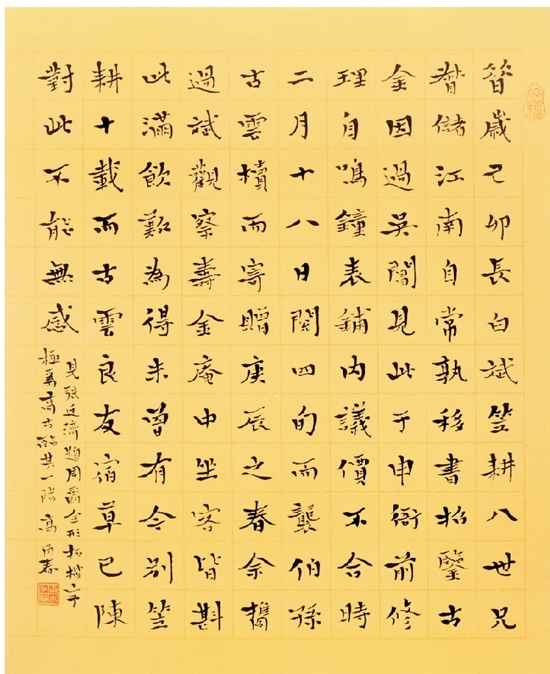 昔歲己卯長白斌笠耕八世兄
督儲江南自常孰移書招鑒古
金因過吳閶見此于申衙前修
理自鳴鐘表鋪內議價不合時
二月十八日閱四旬而襲伯孫
古雲櫝而寄贈庚辰之春余攜
過斌觀察壽金庵中坐客皆斟
此滿飲歎為得未曾有今別笠
耕十載而古雲良友宿草已陳
對此不能無感
見張廷濟題周爵全形拓字
極爲高古臨其一段 高